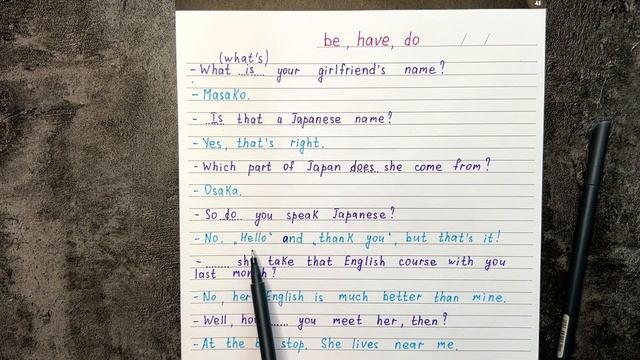 be, have, do / /
(what's)
- What ..is.. your girlfriend's name?
- Masako.
- ..Is.. that a Japanese name?
- Yes, that's right.
- Which part of Japan does she come from?
- Osaka.
- So do you speak Japanese?
- No. „Hello“ and „thank you“, but that's it!
- ....... she take that English course with you
last month?
- No, her English is much better than mine.
- Well, ...... you meet her, then?
- At the stop. She lives near me.